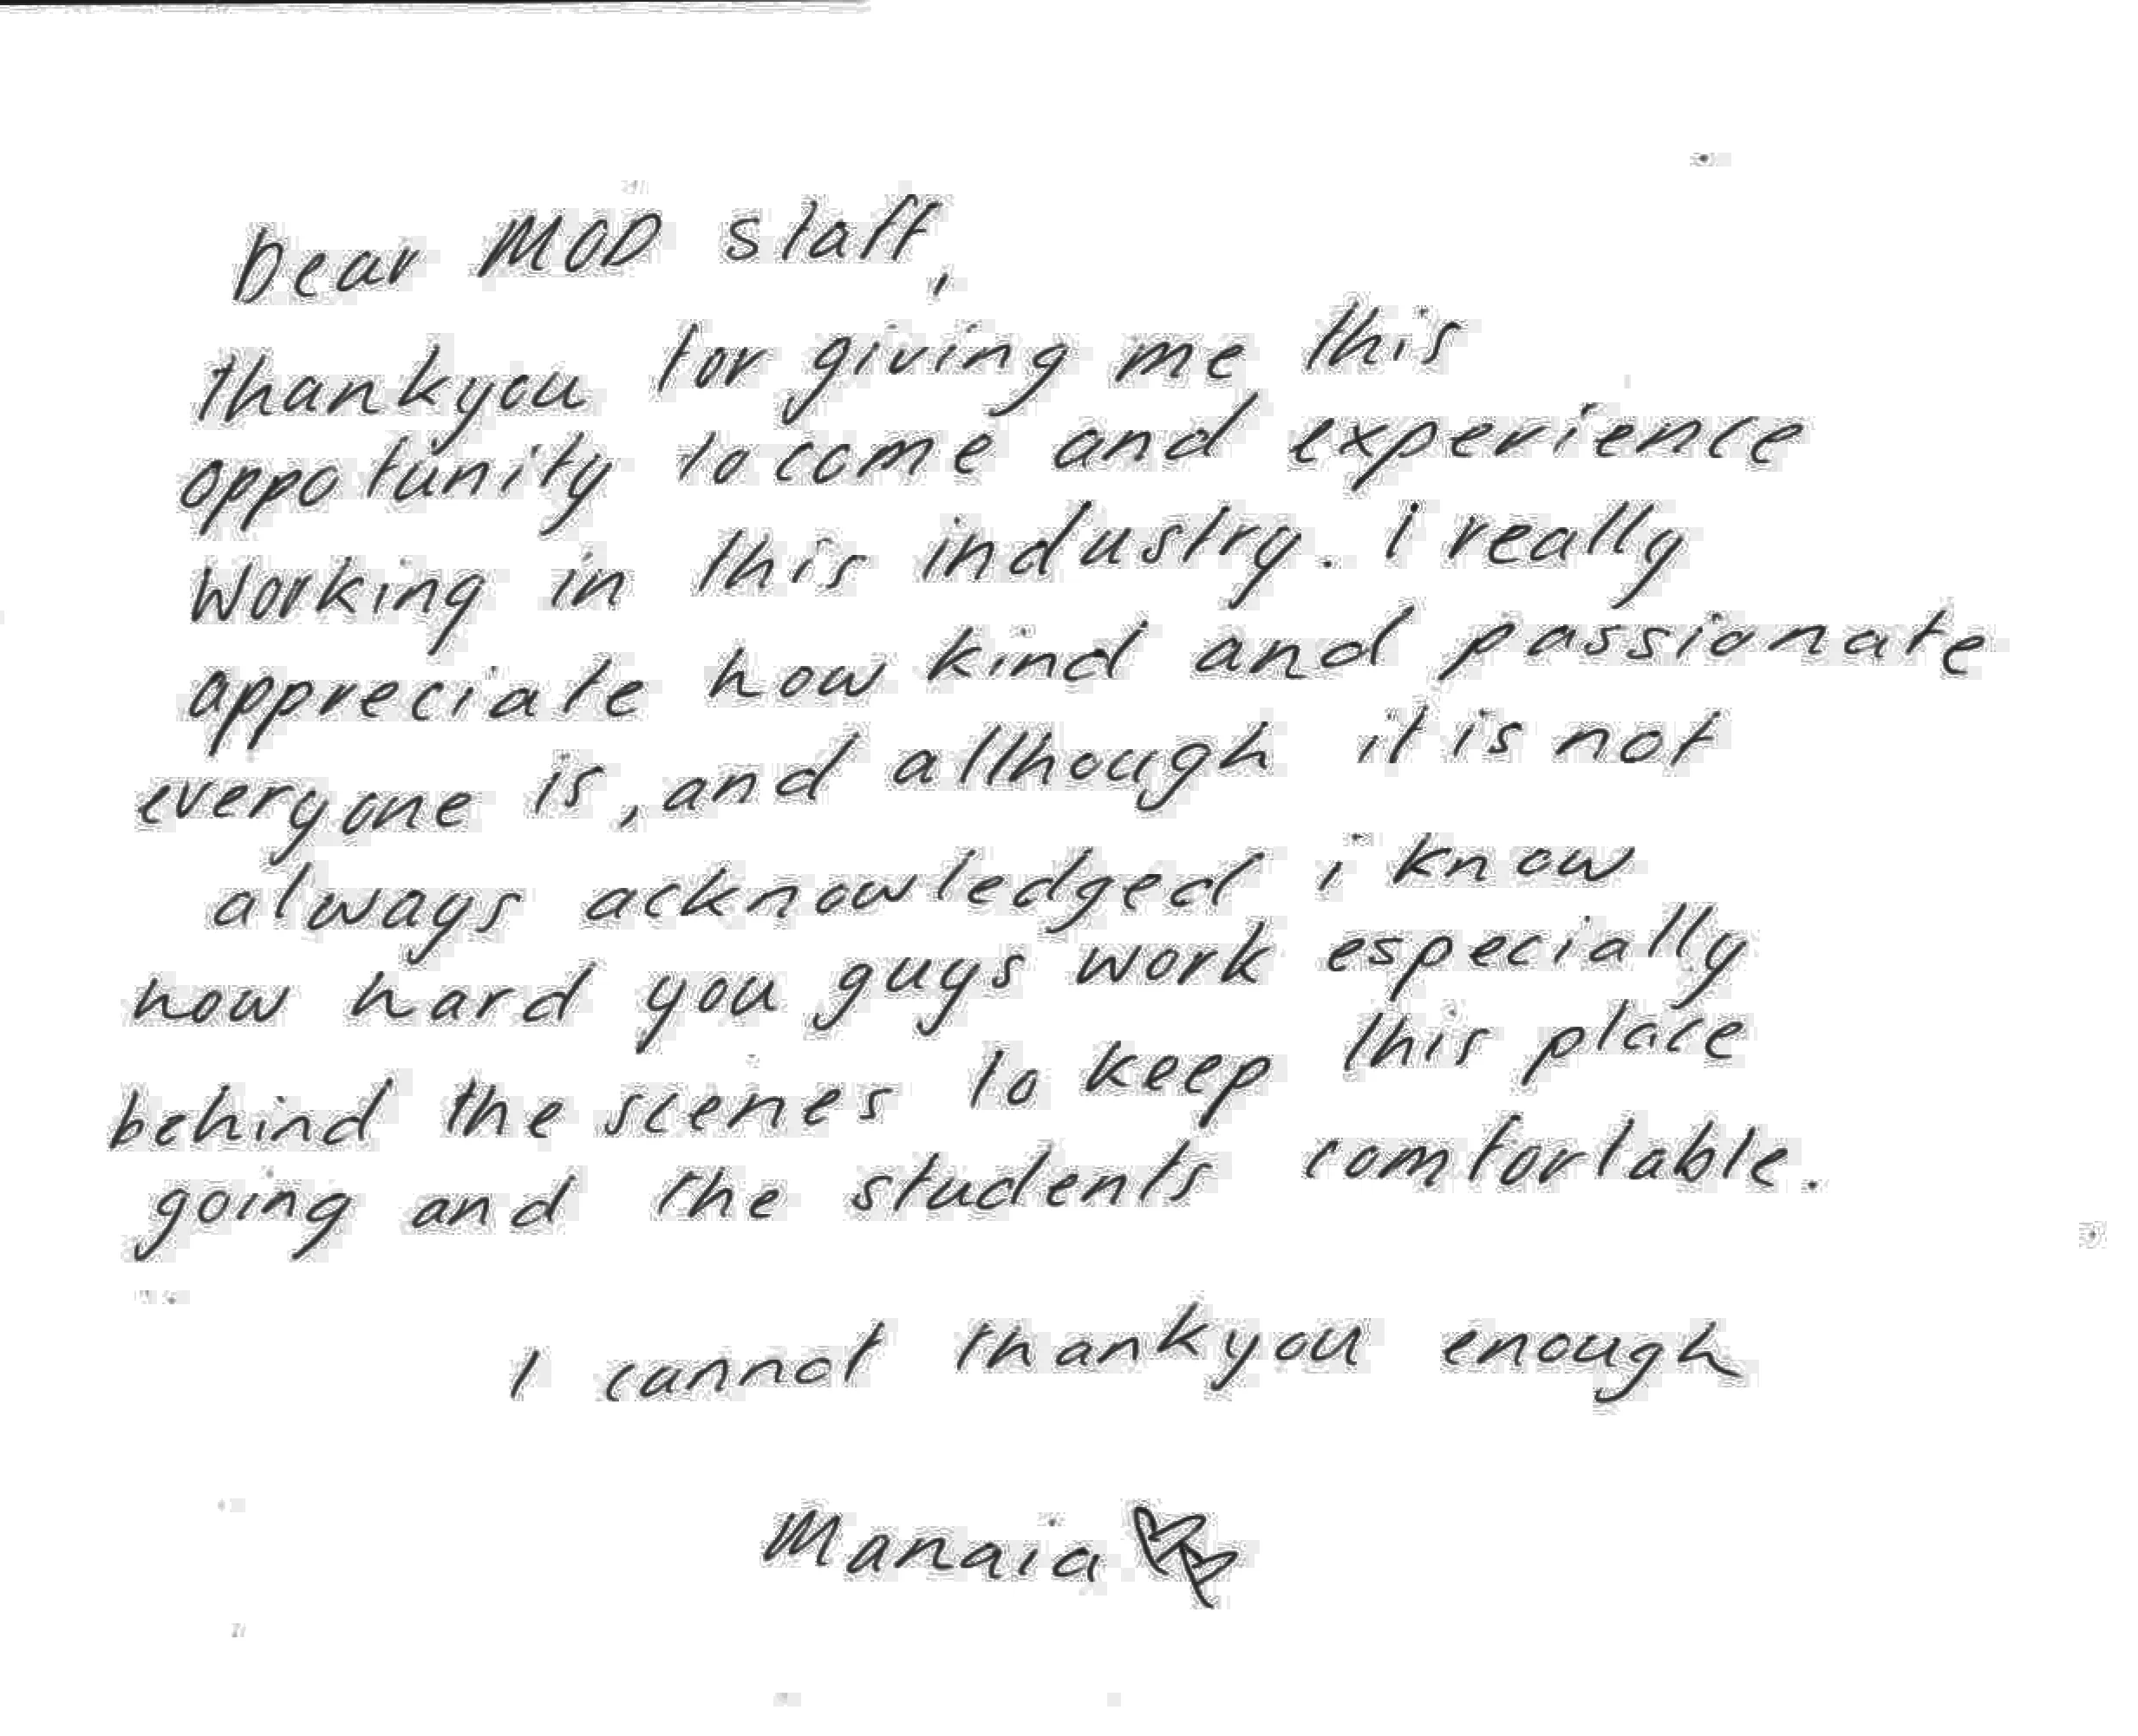 Dear MOD staff,
thankyou for giving me this
oppotunity to come and experience
working in this industry. i really
appreciate how kind and passionate
everyone is, and although it is not
always acknowledged i know
how hard you guys work especially
behind the scenes to keep this place
going and the students comfortable.
I cannot thankyou enough
Manaia